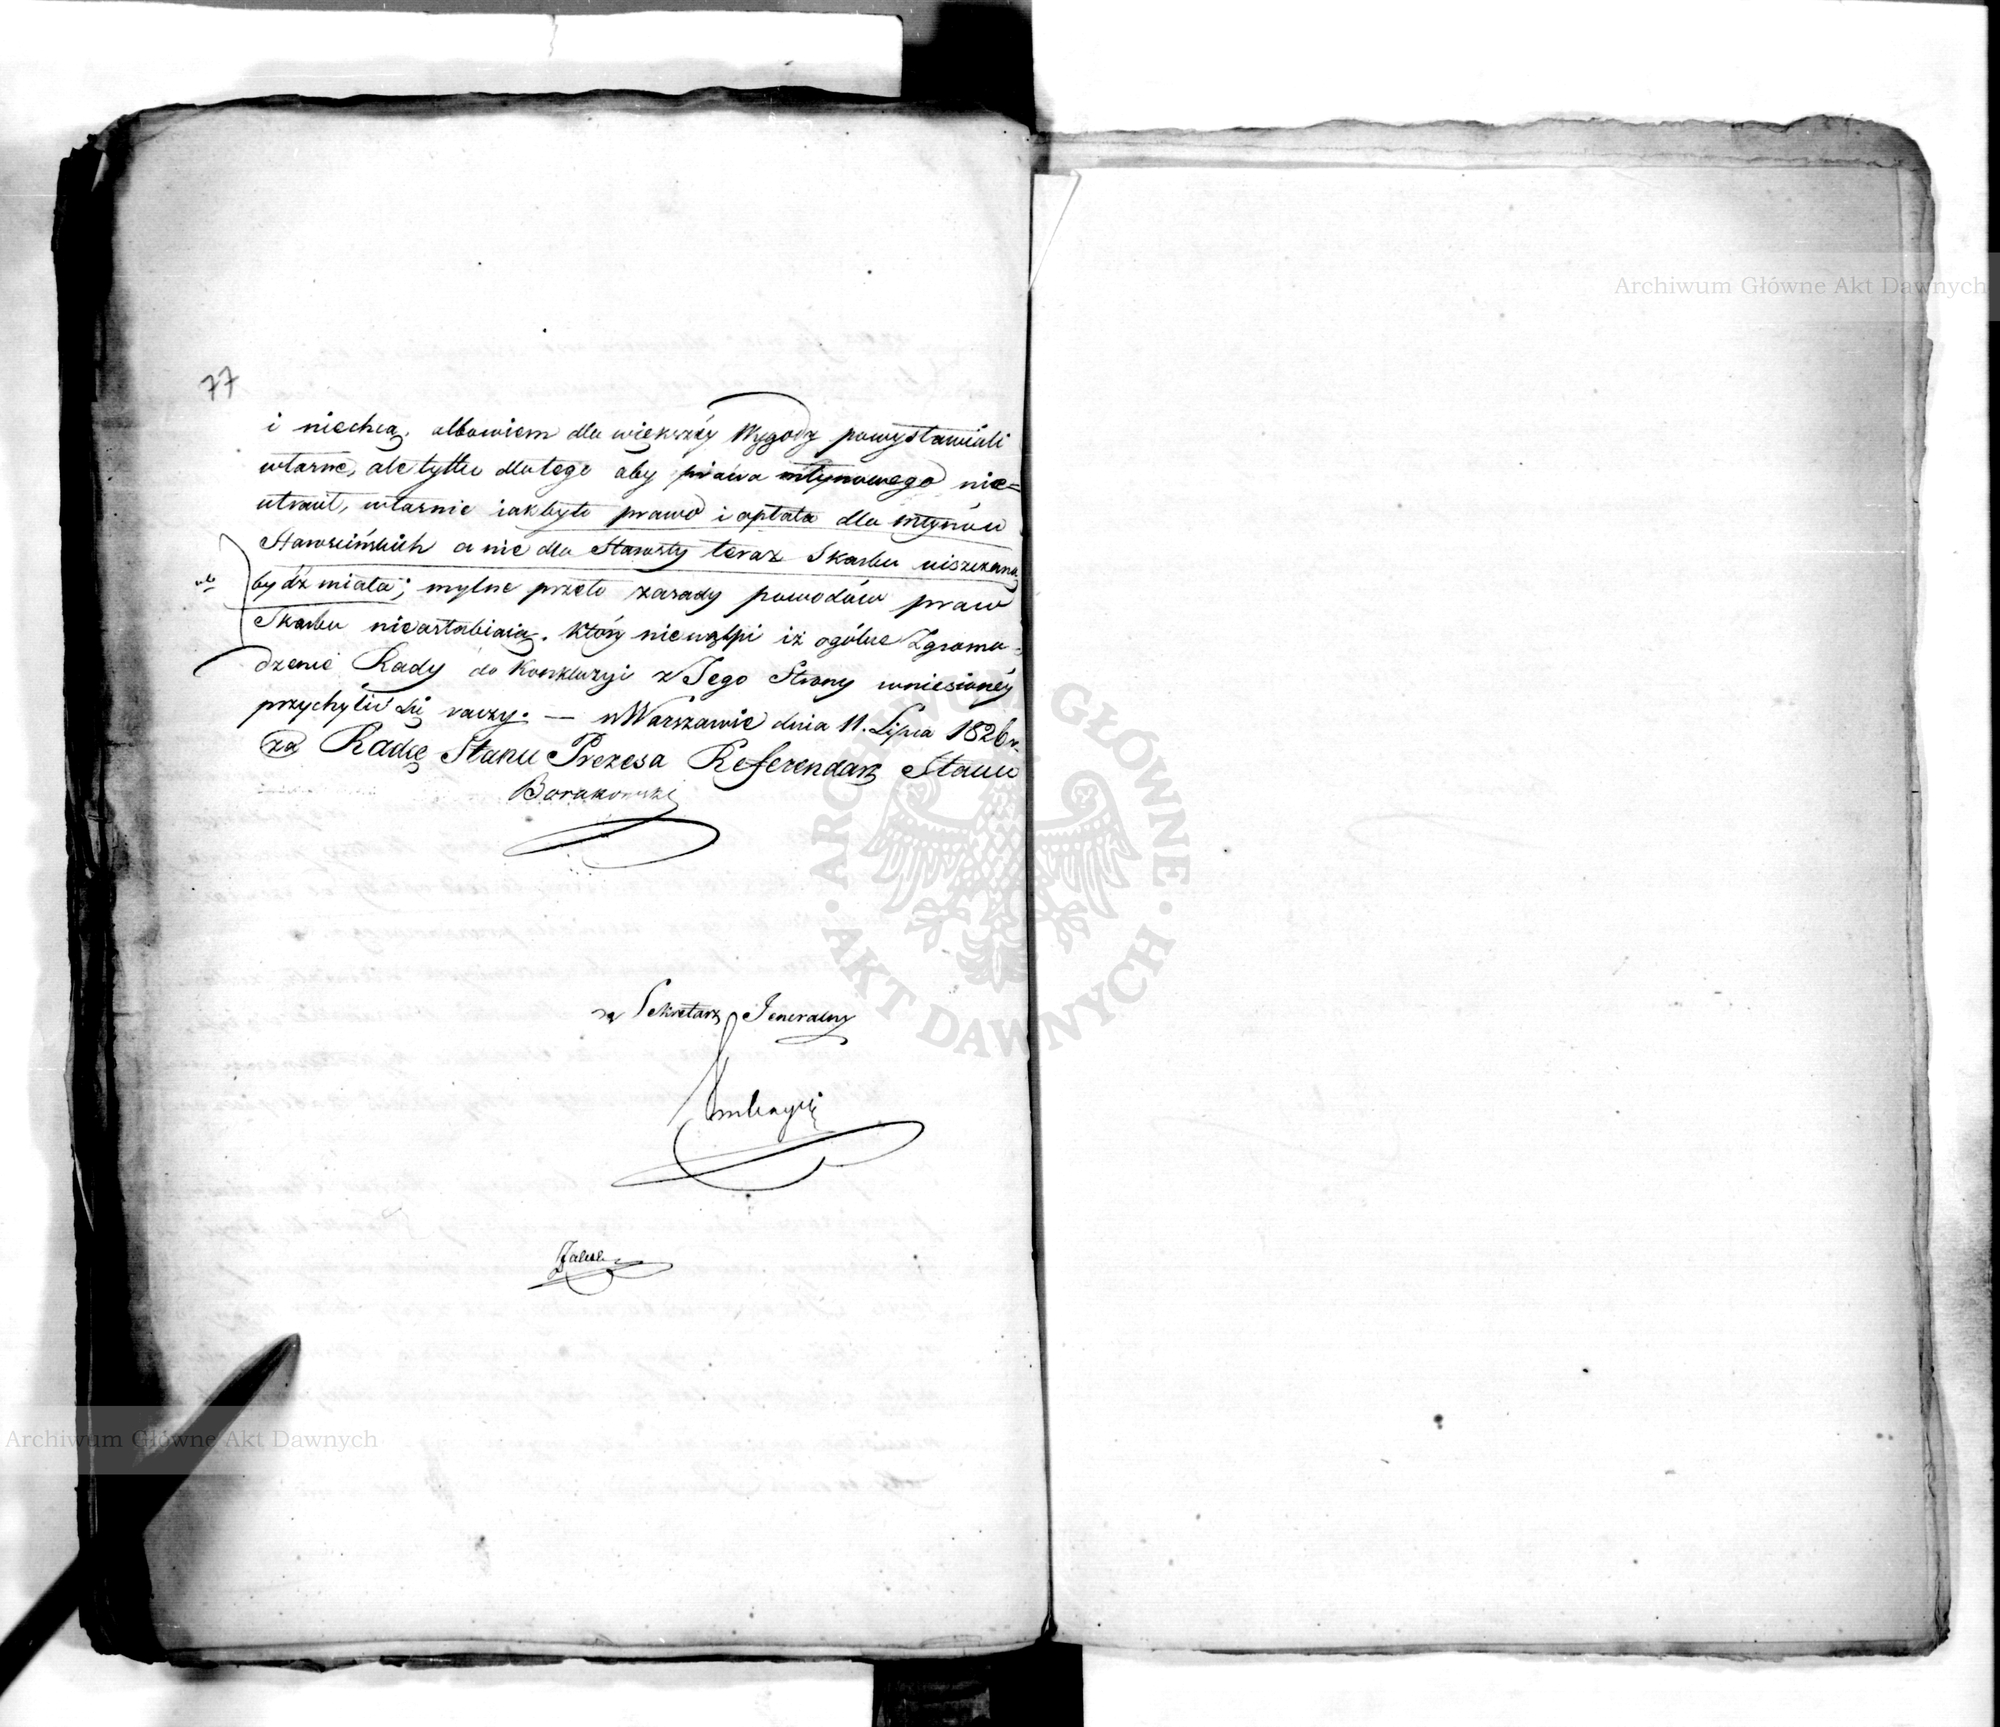 77
i niechcą, albowiem dla większéy Wygody powystawiali
własne, ale tylko dla tego aby prawa młynowego nie=
utracił, właśnie iakbyto prawo i opłata dla młynów
Starościńskich a nie dla Starosty teraz Skarbu uiszczana
bydź miała; mylne przeto zasady powodów praw
Skarbu nieosłabiaią. Który niewątpi iż ogólne Zgroma=
dzenie Rady do Konkluzyi z Jego Strony wniesionéy
przychylić się raczy. — w Warszawie dnia 11. Lipca 1826 r.
za Radcę Stanu Prezesa Referendarz Stanu
Borakowski
za Sekretarz Jeneralny
Archiwum Główne Akt Dawnych
ARCHIWUM GŁÓWNE · AKT DAWNYCH ·
Archiwum Główne Akt Dawnych